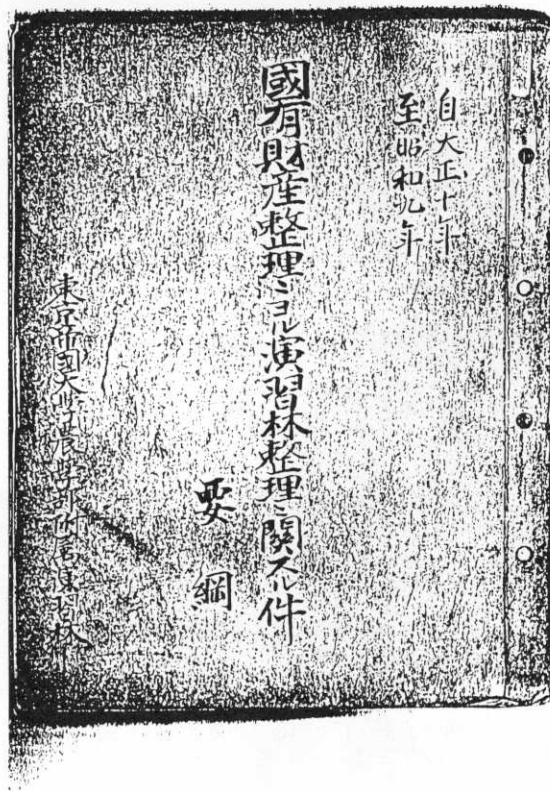 自大正十年
至昭和九年
國有財産整理ニヨル演習林整理ニ関スル件
要綱
東京帝國大學農學部附属演習林